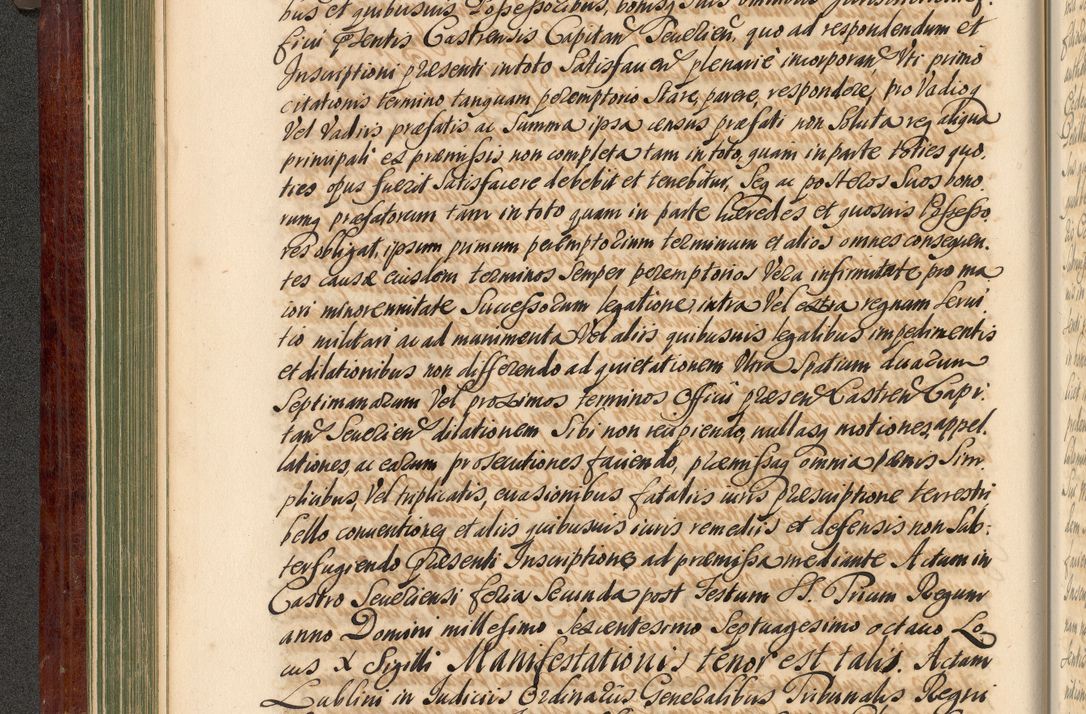 bus et quibusvis Possessoribus, bonisq suis omnibus Jurisdictioni
ficii pntis Castrensis Capitan Severien, quo ad respondendum et
Inscriptioni presenti in toto Satisfacien plenarie incorporan Uti primo
citationis termino tanquam peremptorio Stare, parere, respondere, pro Vadio
Vel Vadiis præfatis ac Summa ipsa census præfati non Soluta req aliqua
principali ex præmissis non completa tam in toto, quam in parte toties quo-
ties opus fuerit Satisfacere debebit et tenebitur, Seq ac posteros Suos bono-
rumq præfatorum tam in toto quam in parte hæredes et quosvis Possesso-
res obligat, ipsum primum peremptorium terminum et alios omnes consequen-
tes causæ eiusdem terminos Semper peremptorios Vera infirmitate, pro ma-
iori minorennitate Successorum legatione, intra Vel extra regnum Servi-
tio militari ac ad munimenta Vel aliis quibusvis legalibus impedimentis
et dilationibus non differendo ad quietationem Vltra Spatium duarum
Septimanarum Vel proximos terminos Officii presen Castren Capi-
tan Severien dilationem Sibi non recipiendo, nullasq motiones, appel-
lationes, ac earum prosecutiones faciendo, præmissaq omnia pænis Sim-
plicibus, Vel triplicatis, evasionibus fataliis iuris præscriptione terrestri
bello conventioneq et aliis quibusvis iuris remediis et defensis non Sub-
terfugiendo Presenti Inscriptione ad præmissa mediante Actum in
Castro Severiensi feria Secunda post Festum SS. Trium Regum
anno Domini millesimo Sexcentesimo Septuagesimo octavo Lo-
cus X Sigilli Manifestationis tenor est talis. Actum
Lublini in Judiciis Ordinariis Generalibus Tribunalis Regni